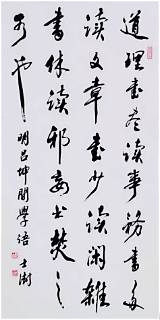 道理書盡讀事務書多
讀文章書少讀閑雜
書休讀邪妄書焚之
可也 明呂坤問學語 士澍